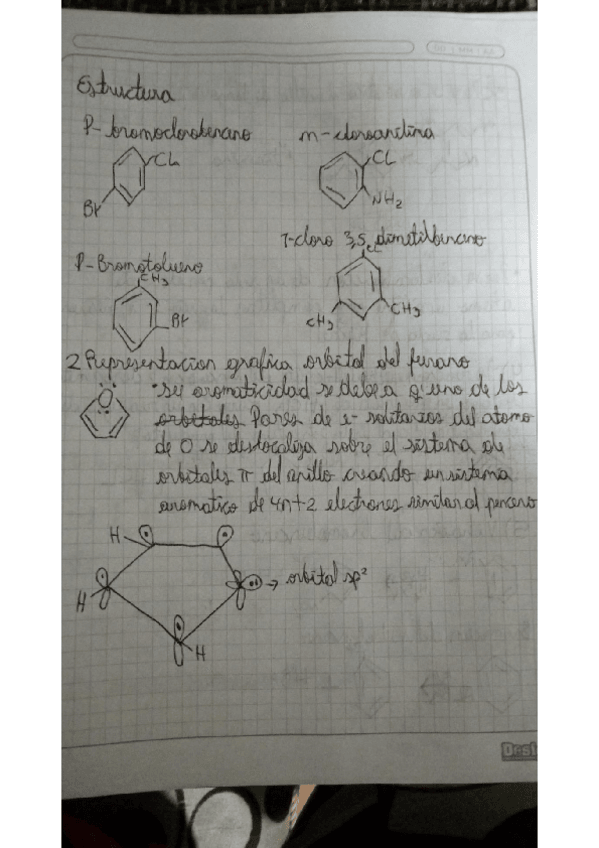 Estructura
P-bromoclorobenceno
m-cloroanilina
CL
Br
CL
NH2
P-Bromotolueno
1-cloro 3,5, dimetilbenceno
CH3
Br
CL
CH3
CH3
2 Representacion grafica orbital del furano
O
• su aromaticidad se debe a q' uno de los
orbitales Pares de e- solitarios del atomo
de O se deslocaliza sobre el sistema de
orbitales π del anillo creando un sistema
aromatico de 4n+2 electrones similar al benceno
H
H
H
→ orbital sp²